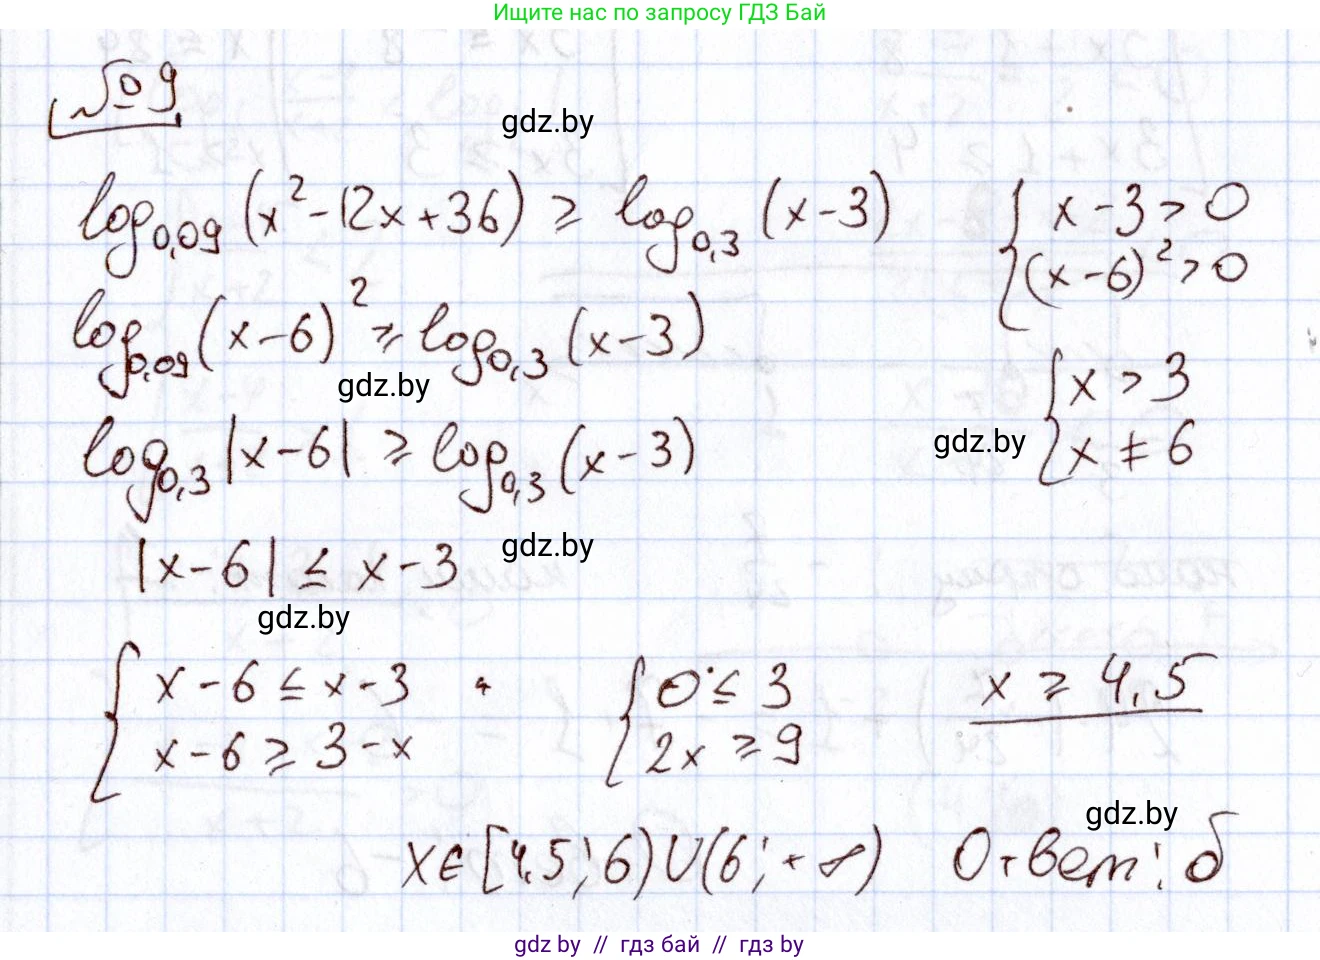 Ищите нас по запросу ГДЗ Бай
№ 9
gdz.by
log₀,₀₉ (x² - 12x + 36) ≥ log₀,₃ (x - 3)
{ x - 3 > 0
(x - 6)² > 0
log₀,₀₉ (x - 6)² ≥ log₀,₃ (x - 3)
gdz.by
{ x > 3
x ≠ 6
gdz.by
log₀,₃ |x - 6| ≥ log₀,₃ (x - 3)
gdz.by
|x - 6| ≤ x - 3
gdz.by
{ x - 6 ≤ x - 3
x - 6 ≥ 3 - x
{ 0 ≤ 3
2x ≥ 9
x ≥ 4,5
gdz.by
x ∈ [4,5; 6) ∪ (6; +∞) Ответ: б
gdz.by // гдз бай // гдз by